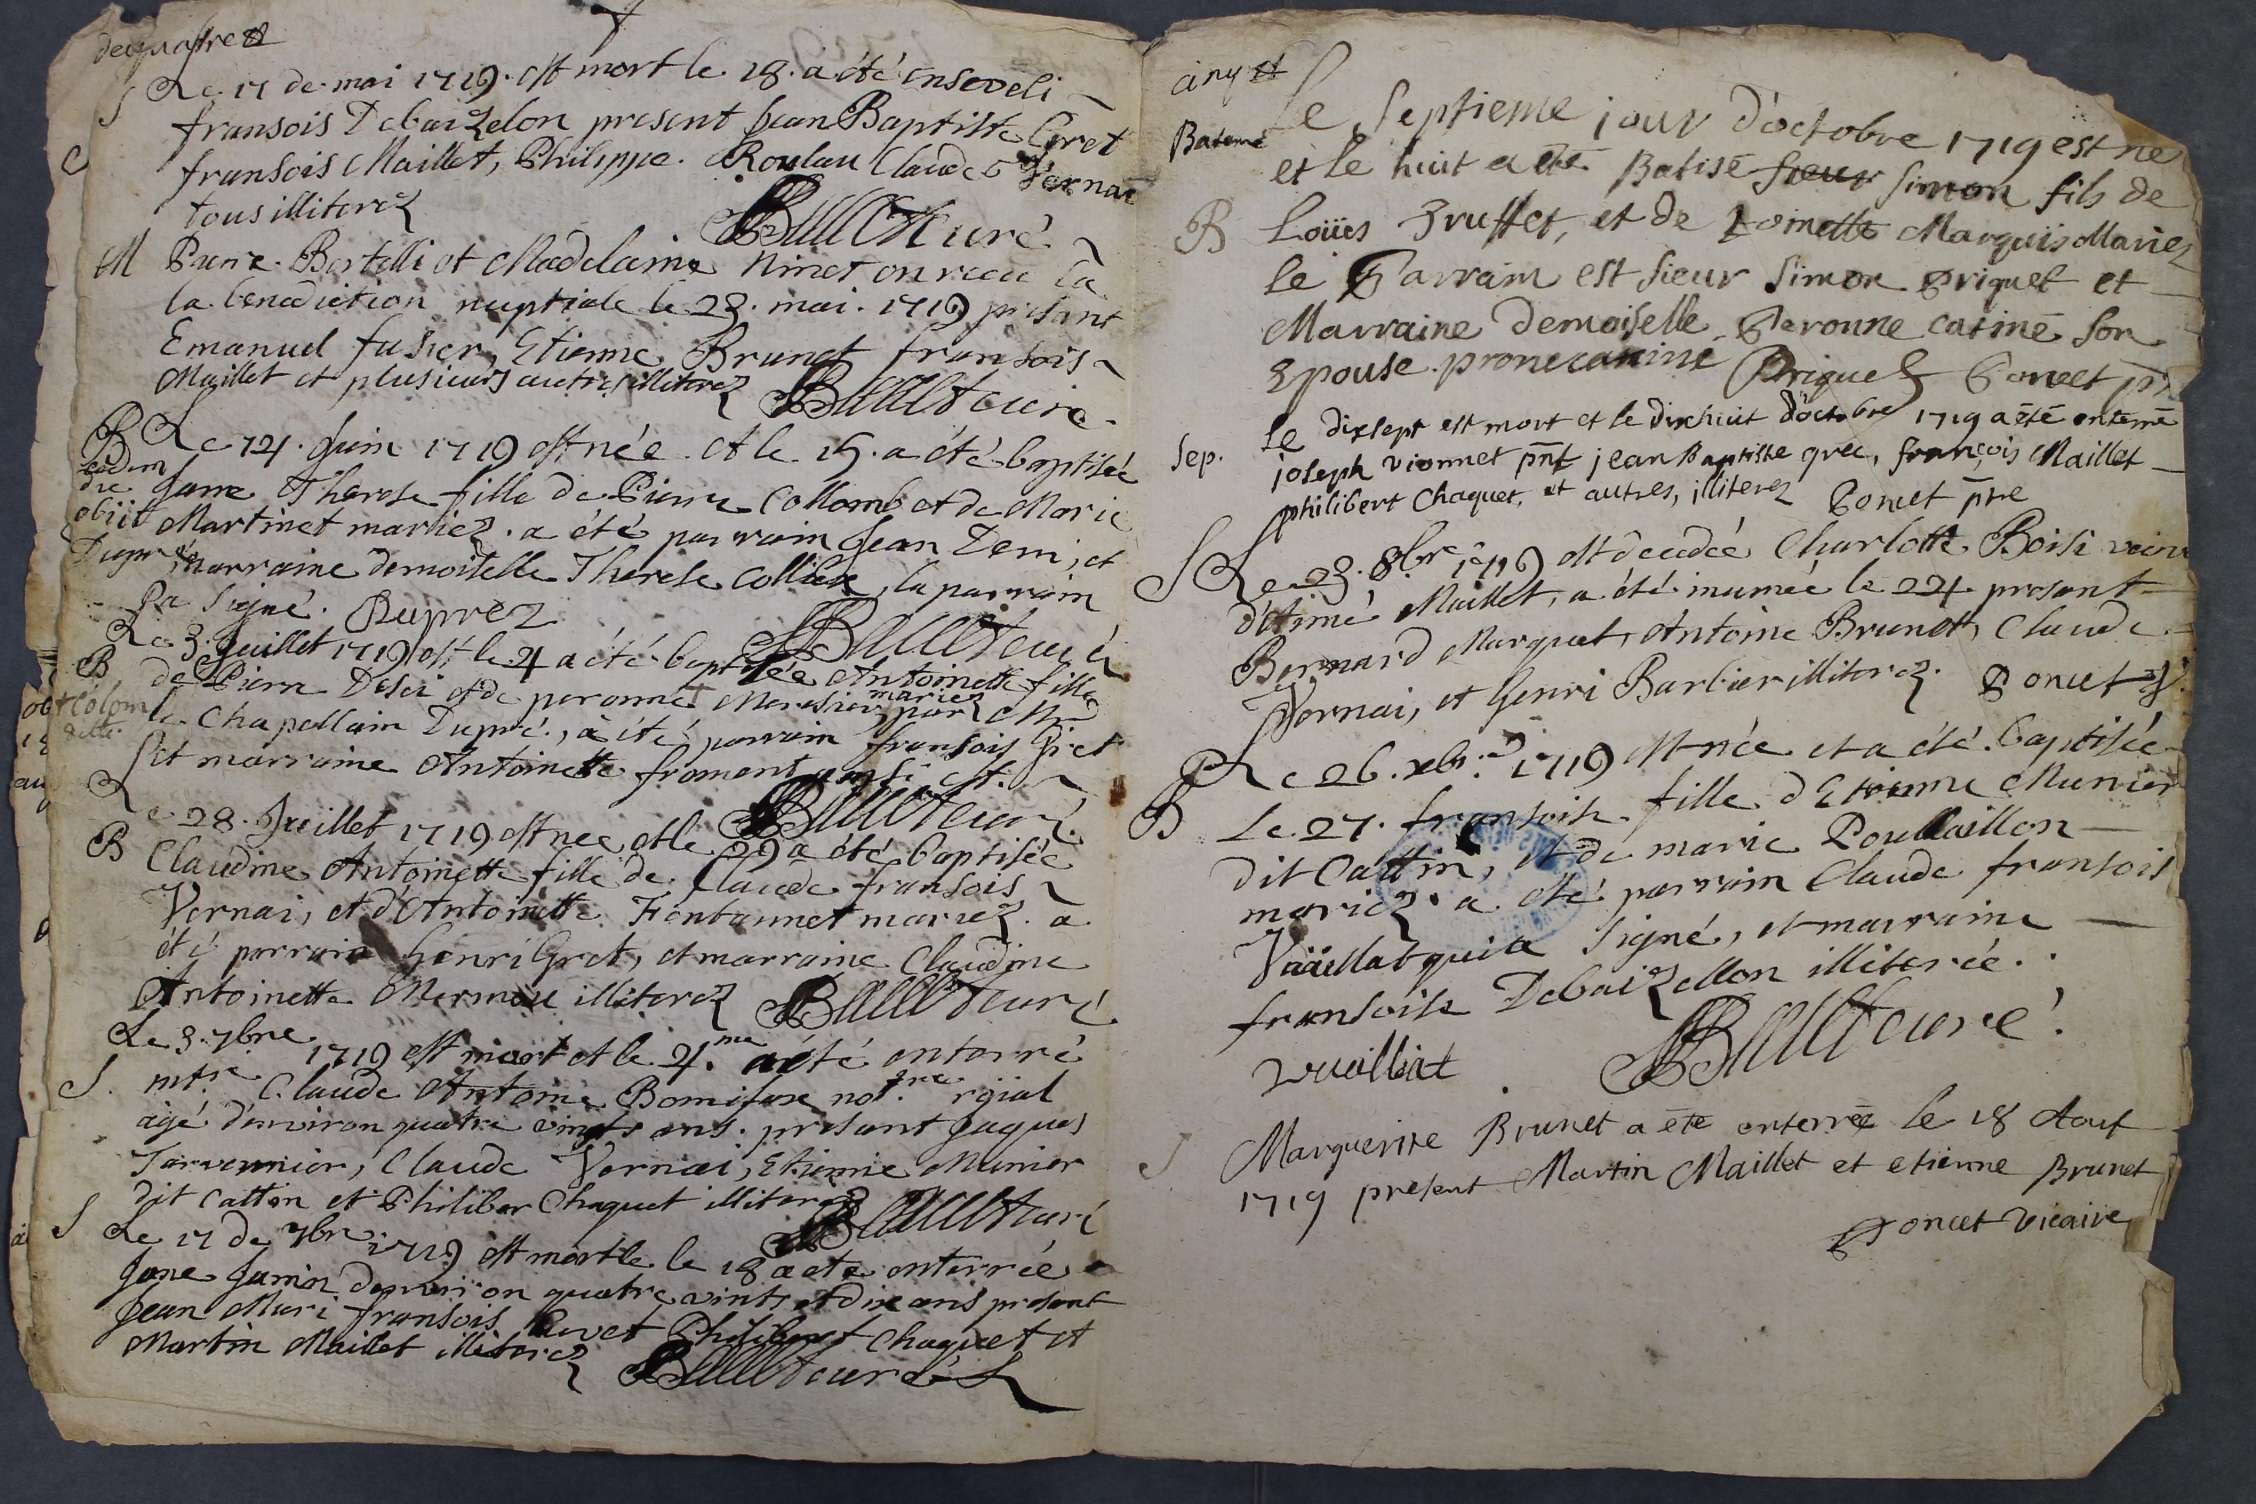 dequatre
Le 17 de mai 1719. est mort le 18. a été enseveli
fransois Debaizelon present Jean Baptiste Gret
fransois Maillet, Philippe. Roulau Claude Vernai
tous illiterez
curé
M Pierre Bertelli et Madelaine Ninet on receu la
la benediction nuptiale le 23. mai. 1719 present
Emanuel fusier, Etienne Brunet fransois
Maillet et plusieurs autres illiterez
curé
B Le 14. Juin 1719 est née et le 15. a été baptisée
eadem die obiit
Jane Therese fille de Pierre Collomb et de Marie
Martinet mariez. a été parrain Jean Deni, et
marraine demoiselle Therese Collier, la parrain
Dupré
Pa signé. Duprez
curé
Le 3. Juillet 1719 est le 4 a été baptisée Antoinette fille
B
de Pierre et de peronne mariez par
le Chapellain Dupré, a été parrain fransois Gret
et marraine Antoinette froment
curé
Le 28. Juillet 1719 est nee et le 29 a été baptisée
B Claudine Antoinette fille de Claude fransois
Vernai, et d'Antoinette Fontannet mariez. a
été parrain henri Gret, et marraine Claudine
Antoinette Mermou illiterez
curé
Le 3. 7bre 1719 est mort et le 4.me a été enterré
S. mtre Claude Antoine Bonifaxe not.re roial
agé d'environ quatre vingts ans. present Jaques
Tarvernier, Claude Vernai, Etienne Munier
dit Cattin et Philiber Chaquet illiterez
curé
S Le 17 de 7bre 1719 est morte le 18 a eté enterrée
Jane Junin d'environ quatre vints et dix ans present
Jean Muri fransois Philibert Chaquet et
Martin Maillet illiterez
curé
cinq
Le septieme jour d'octobre 1719 est né
Bateme
et le huit a été Batisé sieur simon fils de
B Loüies Truffet, et de Toinette Marquis Mariez
le Parrain est sieur simon Priquet et
Marraine demoiselle Peronne catine son
Epouse. prone catine Priquet Poncet ptre
Le dixsept est mort et le dixhuit d'octobre 1719 a été enterré
Sep. joseph vionnet pnt jean Baptiste gret, françois Maillet
philibert Chaquet, et autres, illiterez Poncet ptre
S Le 23. 8bre 1719 est decedée Charlotte Boisi veuve
d'Aimé Maillet, a été inumée le 24. present
Bernard Marquet, Antoine Brunet, Claude
Vernai, et henri Barbier illiterez. Poncet
Le 26. xbre 1719 est née et a été baptisée
B Le 27. fransoise fille d'Etienne Munier
dit Cattin, et de marie Poullaillon
mariez. a été parrain Claude fransois
Vuillat qui a signé, et marraine
fransoise Debaizellon illiterée.
curé
Vuilliat
S Marguerite Brunet a été enterrée le 18 Aout
1719 present Martin Maillet et etienne Brunet
Poncet Vicaire